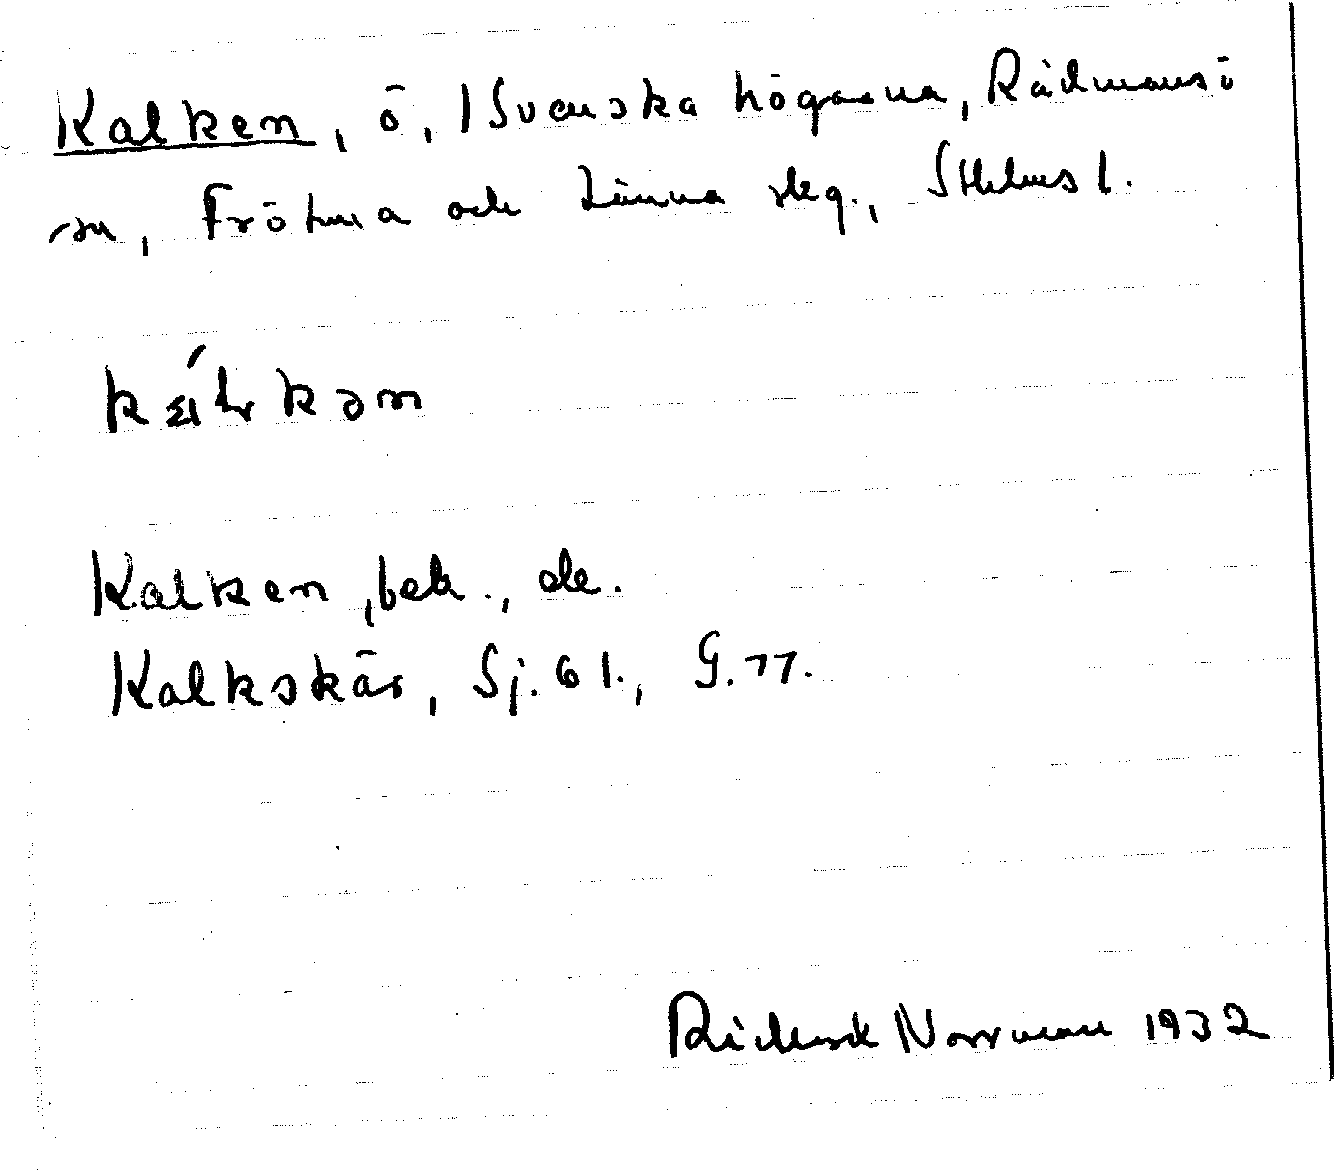 Kalken, ö, i Svenska högarna, Rådmansö
sn, Frötuna och Länna skg., Sthlms l.
Kalken, bek., de.
Kalkskär, Sj. 61., G. 77.
Rickard Norrman 1932